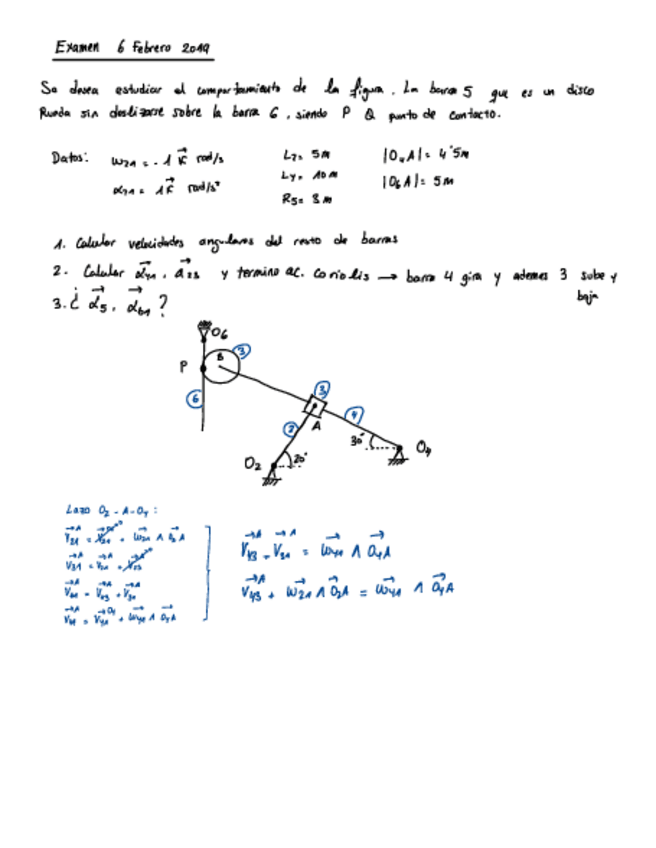 Examen 6 Febrero 2019
Se desea estudiar el comportamiento de la figura. La barra 5 que es un disco
Rueda sin deslizarse sobre la barra 6, siendo P Q punto de contacto.
Datos: ω21 = -1 k rad/s L2= 5m |O4A| = 4'5m
α21 = 1k rad/s² L4= 10m |O6A| = 5m
R5= 3m
1. Calcular velocidades angulares del resto de barras
2. Calcular α41, a23 y termino ac. Coriolis → barra 4 gira y ademas 3 sube y
baja
3. ¿ α5, α61 ?
O6
P B 3
6
3
2 A 4
30° O4
O2 20°
Lazo O2 - A - O4 :
V21 = + ω21 ∧ O2A
V31 = V21 +
V41 = V43 + V31
V41 = V41 + ω41 ∧ O4A
V43 + V21 = ω41 ∧ O4A
V43 + ω21 ∧ O2A = ω41 ∧ O4A